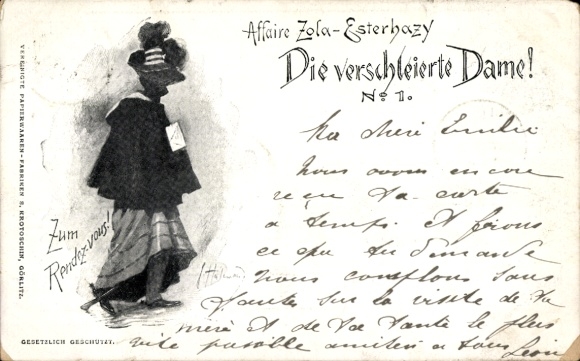 Affaire Zola-Esterhazy
Die verschleierte Dame!
No 1.
VEREINIGTE PAPIERWAAREN-FABRIKEN S. KROTOSCHIN, GÖRLITZ.
Zum
Rendez-vous!
GESETZLICH GESCHÜTZT.
Ma chère Emilie
nous avons encore
reçu ta carte
à temps. Et ferons
ce que tu demande
nous comptons sans
faute sur la visite de ta
mère et de ta tante le plus
vite possible amitiés à tous